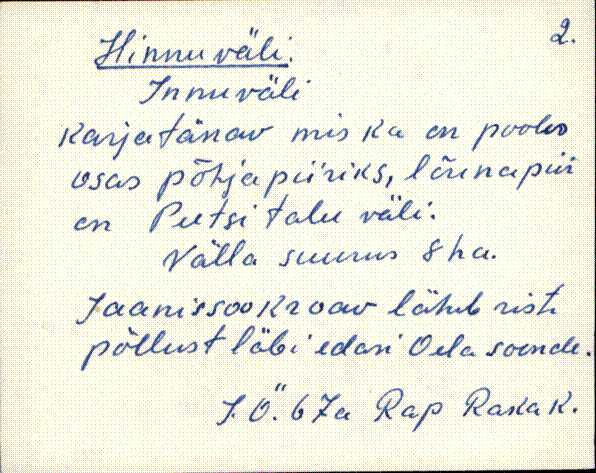 2.
Hinnuväli.
Innuväli
Karjatänav mis ka on pooles
osas põhjapiiriks, lõunapiir
on Peetsi talu väli.
Välla suurus 8 ha.
Jaanissookraav läheb risti
põllust läbi edasi Oela soonde.
J. Ö. 67a Rap Raka k.